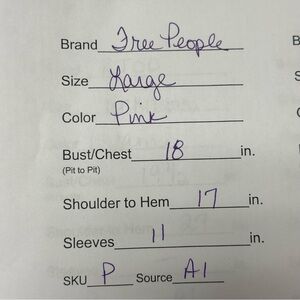 Brand Free People
Size Large
Color Pink
Bust/Chest 18 in.
(Pit to Pit)
Shoulder to Hem 17 in.
Sleeves 11 in.
SKU P Source A1